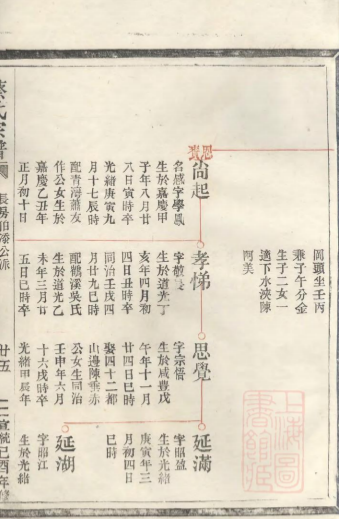 圓顯坐壬丙
兼子午分金
生子二女一
適下水淡陳
阿美
尚起
名感字學
生於嘉慶甲
子年八月廿
八日寅時卒
光緒庚寅九
月十七辰時
配青海蕭友
作公女生於
嘉慶乙丑年
正月初十日
孝悌
字
生於道光丁
亥年四月初
四日丑時卒
同治壬戌四
月廿九巳時
配鶴溪吳氏
生於道光乙
未年三月廿
五日巳時卒
思覺
字宗
生於咸豐戊
午年十一月
廿四日巳時
娶四十二都
山邊陳垂赤
公女生同治
壬申年六月
十六戌時卒
光緒甲辰年
延滿
字昭盈
生於光緒
庚寅年三
月初四日
巳時
延湖
字昭江
生於光緒
宗譜
長房和添公派
廿五
宣統己酉年修
上海圖
書館